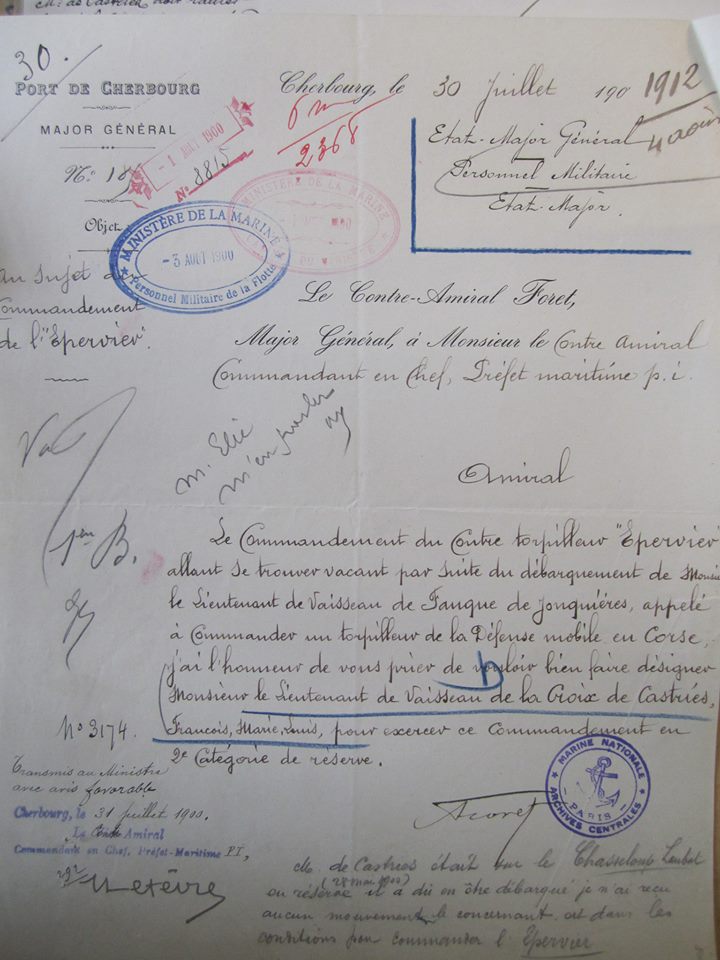 30.
PORT DE CHERBOURG
MAJOR GÉNÉRAL
- 1 AOUT 1900
No. 8815
6 m
2368
Cherbourg, le 30 Juillet 190
1912
4 août
Etat-Major Général
Personnel Militaire
Etat-Major.
Objet
MINISTÈRE DE LA MARINE
- 3 AOUT 1900
Personnel Militaire de la Flotte
MINISTÈRE DE LA MARINE
au sujet du
Commandement
de l'"Epervier".
Le Contre-Amiral Foret,
Major Général, à Monsieur le Contre Amiral
Commandant en Chef, Préfet maritime p.i.
M. Elie
m'en parler
Amiral
1er B.
Le Commandement du Contre torpilleur "Epervier"
allant se trouver vacant par suite du débarquement de Monsie
le Lieutenant de Vaisseau de Fauque de Jonquières, appelé
à Commander un torpilleur de la Défense mobile en Corse,
j'ai l'honneur de vous prier de vouloir bien faire désigner
Monsieur le Lieutenant de Vaisseau de la Croix de Castries,
François, Marie, Louis, pour exercer ce Commandement en
2e Catégorie de réserve.
No 3174.
Transmis au Ministre
avec avis favorable
Cherbourg, le 31 juillet 1900.
Le Contre Amiral
Commandant en Chef, Préfet-Maritime P.I,
Lefèvre
Foret
MARINE NATIONALE
PARIS
ARCHIVES CENTRALES
M. de Castries était sur le Chasseloup Laubat
en réserve (28 mai 1900) il a dû en être débarqué je n'ai reçu
aucun mouvement le concernant. est dans les
conditions pour commander l'Epervier